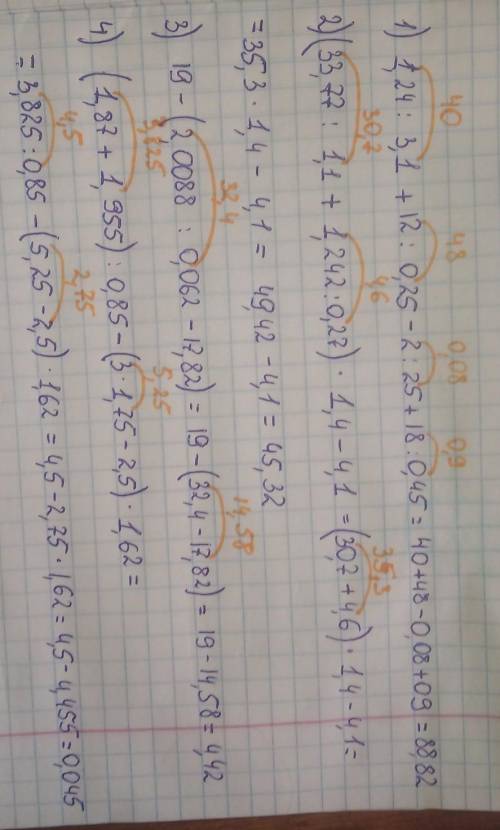 40 48 0,08 0,9
1) 1,24 : 3,1 + 12 : 0,25 - 2 : 25 + 18 : 0,45 = 40 + 48 - 0,08 + 09 = 88,82
30,7 4,6 35,3
2) (33,77 : 1,1 + 1,242 : 0,27) · 1,4 - 4,1 = (30,7 + 4,6) · 1,4 - 4,1 =
= 35,3 · 1,4 - 4,1 = 49,42 - 4,1 = 45,32
32,4 14,58
3) 19 - (2,0088 : 0,062 - 17,82) = 19 - (32,4 - 17,82) = 19 - 14,58 = 4,42
3,825 5,25
4) (1,87 + 1,955) : 0,85 - (3 · 1,75 - 2,5) · 1,62 =
4,5 2,75
= 3,825 : 0,85 - (5,25 - 2,5) · 1,62 = 4,5 - 2,75 · 1,62 = 4,5 - 4,455 = 0,045